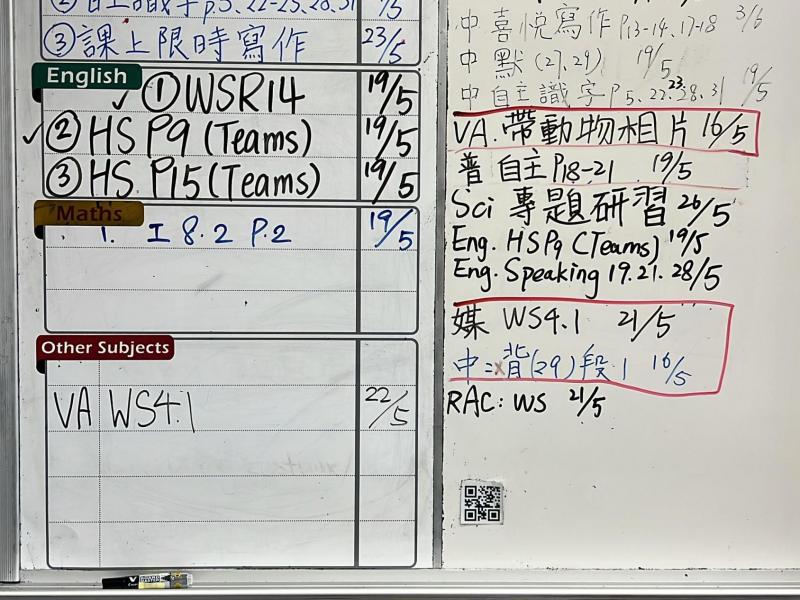 ②自主識字p.5、22-23、28、31 19/5
③課上限時寫作 23/5
English
✓ ①WSR14 19/5
✓ ②HS P9 (Teams) 19/5
③HS P15 (Teams) 19/5
Maths
1. 工 8.2 P.2 19/5
Other Subjects
VA WS4.1 22/5
中 喜悅寫作 P.13-14、17-18 3/6
中 默 (27, 29) 19/5
中 自主識字 P 5、22、23、28、31 19/5
VA. 帶動物相片 16/5
普 自主 P18-21 19/5
Sci 專題研習 26/5
Eng. HSP9 (Teams) 19/5
Eng. Speaking 19.21.28/5
媒 WS4.1 21/5
中: 背(29) 段1 16/5
RAC: WS 21/5